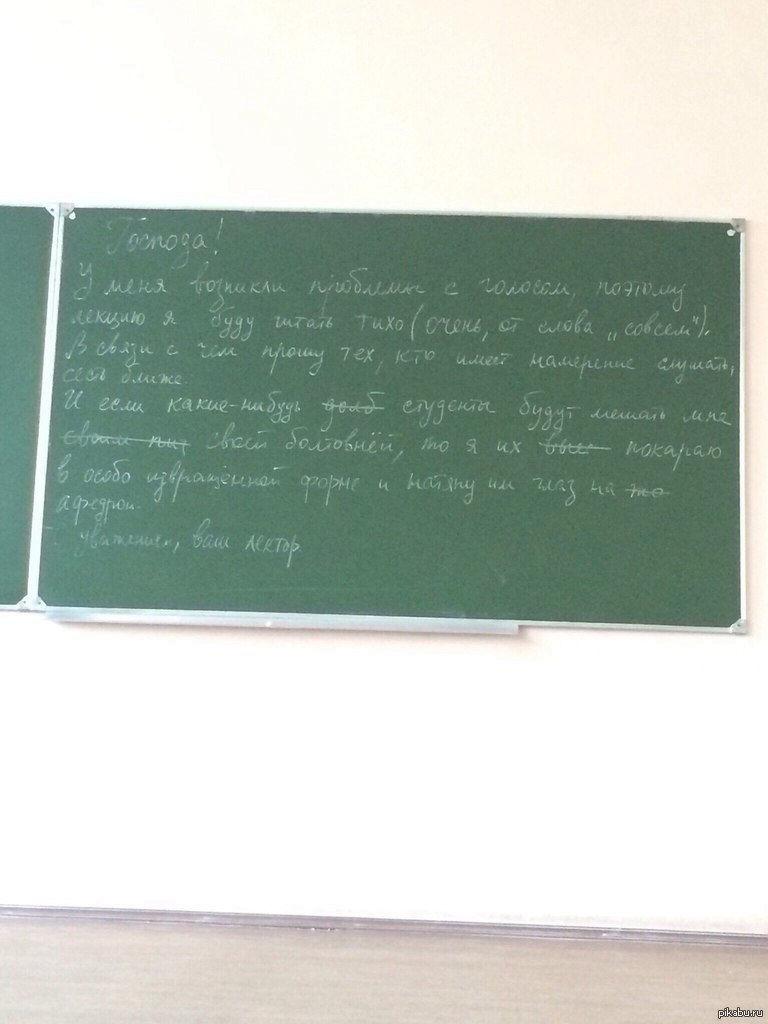 Господа!
У меня возникли проблемы с голосом, поэтому
лекцию я буду читать тихо (очень, от слова „совсем").
В связи с чем прошу тех, кто имеет намерение слушать,
сесть ближе.
И если какие-нибудь долб студенты будут мешать мне
своим пиз своей болтовнёй, то я их вые покараю
в особо извращённой форме и натяну им глаз на жо
афедрон.
С уважением, ваш лектор
pikabu.ru